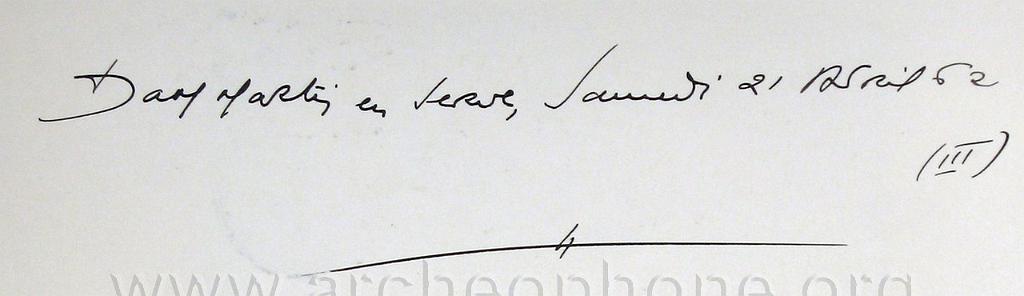 Dammartin en Serve, Samedi 21 Avril 62
(III)
www.archeophone.org